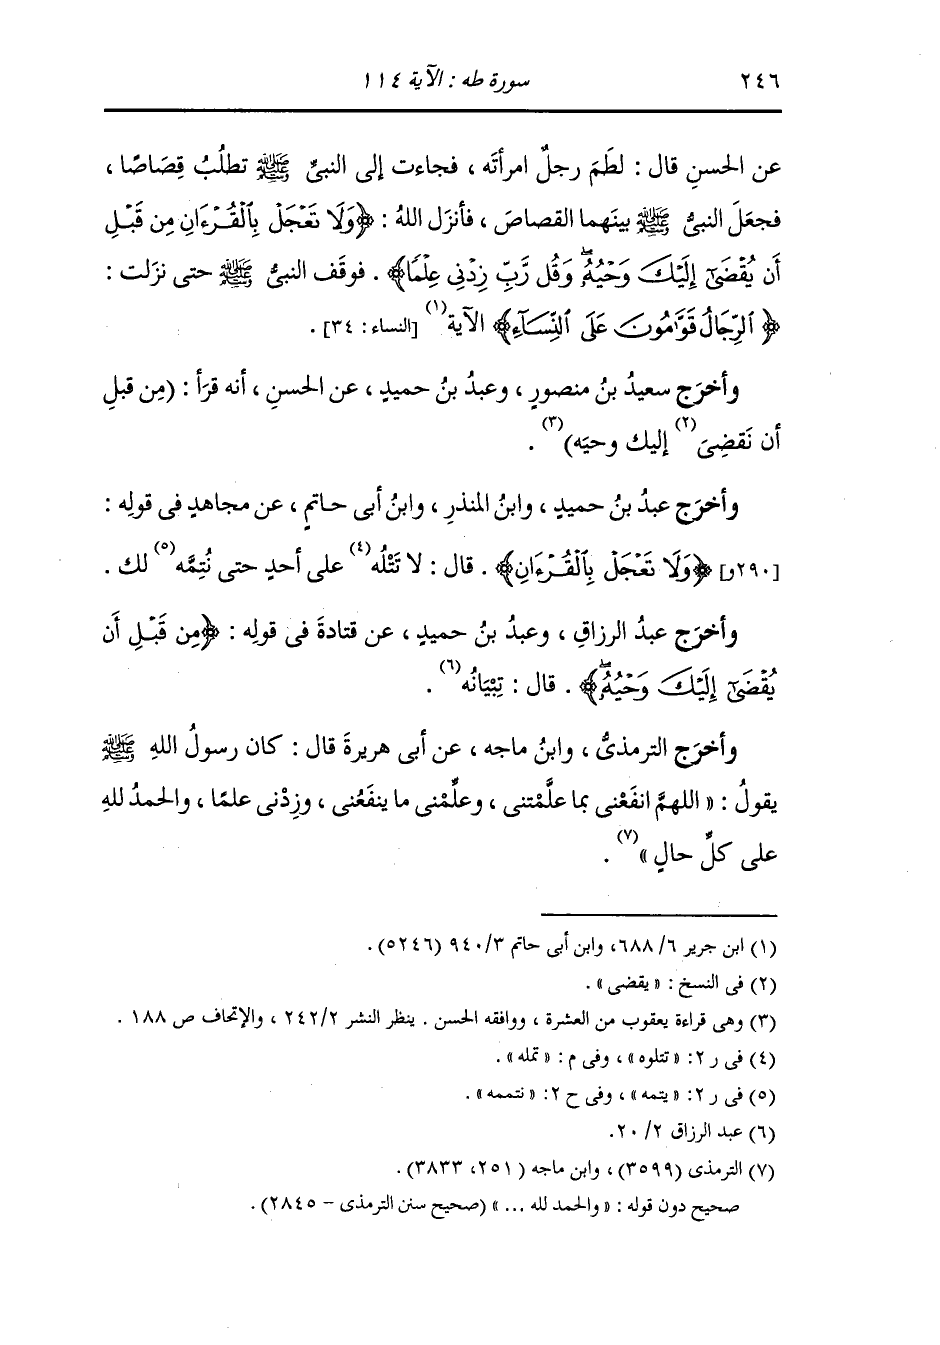 ٢٤٦ سورة طه : الآية ١١٤
عن الحسنِ قال : لطَمَ رجلٌ امرأتَه ، فجاءت إلى النبىِّ ﷺ تطلُبُ قِصَاصًا ،
فجعَلَ النبىُّ ﷺ بينَهما القصاصَ ، فأنزَل اللهُ : ﴿وَلَا تَعْجَلْ بِٱلْقُرْءَانِ مِن قَبْلِ
أَن يُقْضَىٰٓ إِلَيْكَ وَحْيُهُۥۖ وَقُل رَّبِّ زِدْنِى عِلْمًا﴾ . فوقَف النبىُّ ﷺ حتى نزَلت :
﴿ٱلرِّجَالُ قَوَّٰمُونَ عَلَى ٱلنِّسَآءِ﴾ الآية(١) [النساء : ٣٤] .
وأخرَج سعيدُ بنُ منصورٍ ، وعبدُ بنُ حميدٍ ، عن الحسنِ ، أنه قرَأ : (مِن قبلِ
أن نَقضِىَ(٢) إليك وحيَه)(٣) .
وأخرَج عبدُ بنُ حميدٍ ، وابنُ المنذرِ ، وابنُ أبى حاتمٍ ، عن مجاهدٍ فى قولِه :
[٢٩٠و] ﴿وَلَا تَعْجَلْ بِٱلْقُرْءَانِ﴾ . قال : لا تَتْلُه(٤) على أحدٍ حتى نُتِمَّه(٥) لك .
وأخرَج عبدُ الرزاقِ ، وعبدُ بنُ حميدٍ ، عن قتادةَ فى قولِه : ﴿مِن قَبْلِ أَن
يُقْضَىٰٓ إِلَيْكَ وَحْيُهُۥۖ﴾ . قال : تِبْيَانُه(٦) .
وأخرَج الترمذىُّ ، وابنُ ماجه ، عن أبى هريرةَ قال : كان رسولُ اللهِ ﷺ
يقولُ : « اللهمَّ انفَعْنى بما علَّمْتنى ، وعلِّمْنى ما ينفَعُنى ، وزِدْنى علمًا ، والحمدُ للهِ
على كلِّ حالٍ »(٧) .
(١) ابن جرير ٦/ ٦٨٨، وابن أبى حاتم ٩٤٠/٣ (٥٢٤٦) .
(٢) فى النسخ : « يقضى » .
(٣) وهى قراءة يعقوب من العشرة ، ووافقه الحسن . ينظر النشر ٢٤٢/٢ ، والإتحاف ص ١٨٨ .
(٤) فى ر ٢: « تتلوه » ، وفى م : « تمله » .
(٥) فى ر ٢: « يتمه » ، وفى ح ٢: « نتممه » .
(٦) عبد الرزاق ٢/ ٢٠.
(٧) الترمذى (٣٥٩٩) ، وابن ماجه ( ٢٥١، ٣٨٣٣) .
صحيح دون قوله : « والحمد لله ... » (صحيح سنن الترمذى – ٢٨٤٥) .